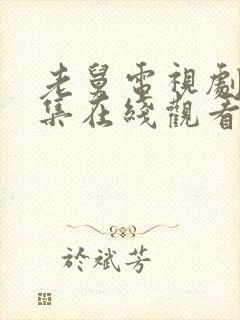 老舅電視劇
集在綫觀看
於斌芳